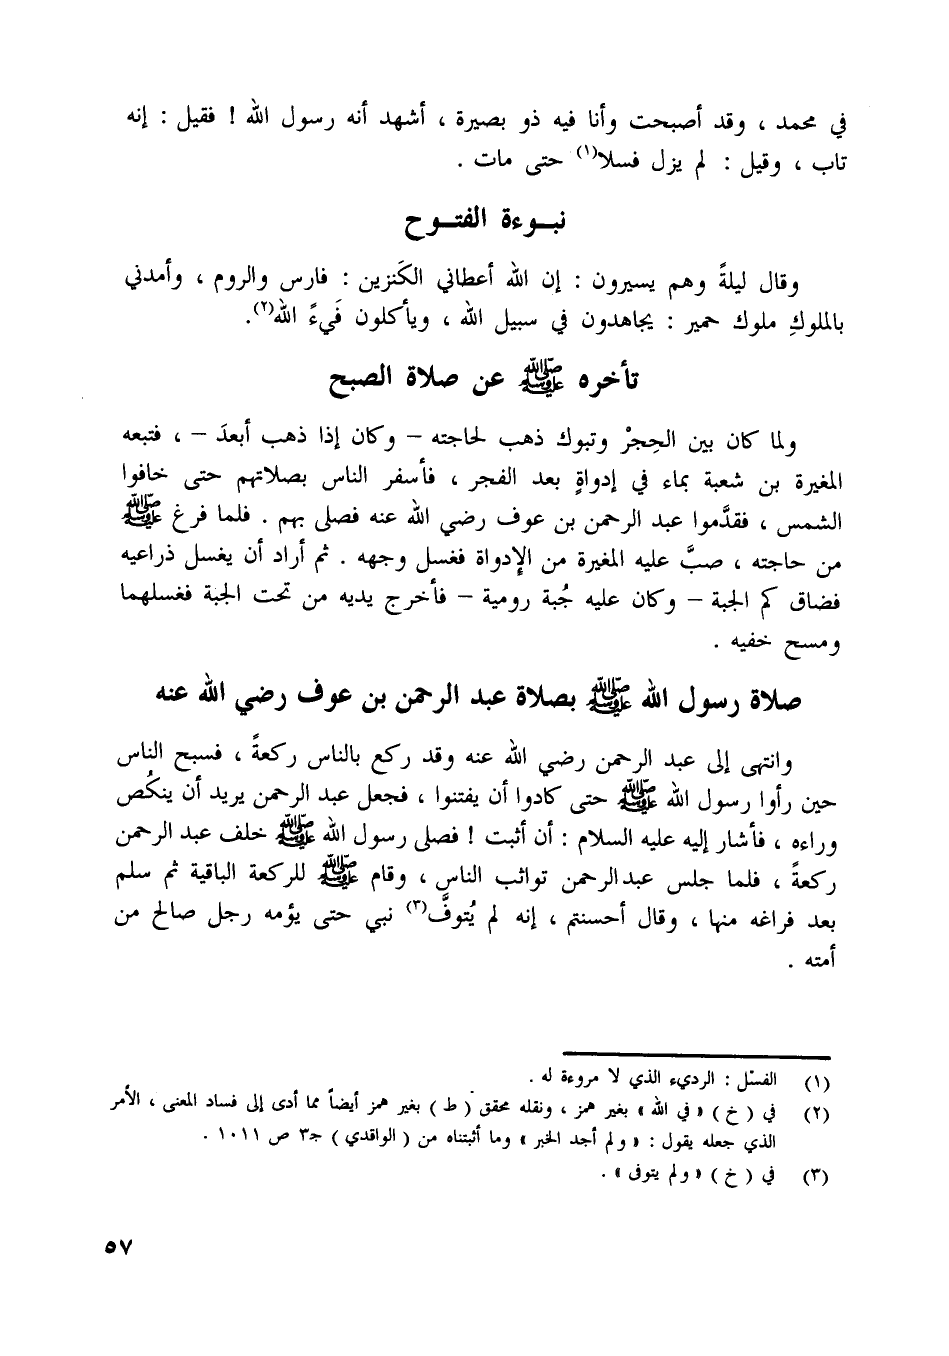 في محمد ، وقد أصبحت وأنا فيه ذو بصيرة ، أشهد أنه رسول الله ! فقيل : إنه
تاب ، وقيل : لم يزل فسلا(١) حتى مات .
نبــوءة الفتــوح
وقال ليلةً وهم يسيرون : إن الله أعطاني الكَنزين : فارس والروم ، وأمدني
بالملوكِ ملوك حمير : يجاهدون في سبيل الله ، ويأكلون فَيءَ الله(٢).
تأخره ﷺ عن صلاة الصبح
ولما كان بين الحِجرْ وتبوك ذهب لحاجته – وكان إذا ذهب أبعدَ – ، فتبعه
المغيرة بن شعبة بماء في إدواةٍ بعد الفجر ، فأسفر الناس بصلاتهم حتى خافوا
الشمس ، فقدَّموا عبد الرحمن بن عوف رضي الله عنه فصلى بهم . فلما فرغ ﷺ
من حاجته ، صبَّ عليه المغيرة من الإدواة فغسل وجهه . ثم أراد أن يغسل ذراعيه
فضاق كم الجبة – وكان عليه جُبة رومية – فأخرج يديه من تحت الجبة فغسلهما
ومسح خفيه .
صلاة رسول الله ﷺ بصلاة عبد الرحمن بن عوف رضي الله عنه
وانتهى إلى عبد الرحمن رضي الله عنه وقد ركع بالناس ركعةً ، فسبح الناس
حين رأوا رسول الله ﷺ حتى كادوا أن يفتنوا ، فجعل عبد الرحمن يريد أن ينكُص
وراءه ، فأشار إليه عليه السلام : أن أثبت ! فصلى رسول الله ﷺ خلف عبد الرحمن
ركعةً ، فلما جلس عبد الرحمن تواثب الناس ، وقام ﷺ للركعة الباقية ثم سلم
بعد فراغه منها ، وقال أحسنتم ، إنه لم يُتوفَّ(٣) نبي حتى يؤمه رجل صالح من
أمته .
(١) الفسْل : الرديء الذي لا مروءة له .
(٢) في ( خ ) « في الله » بغير همز ، ونقله محقق ( ط ) بغير همز أيضاً مما أدى إلى فساد المعنى ، الأمر
الذي جعله يقول : « ولم أجد الخبر » وما أثبتناه من ( الواقدي ) جـ٣ ص ١٠١١ .
(٣) في ( خ ) « ولم يتوفى » .
٥٧